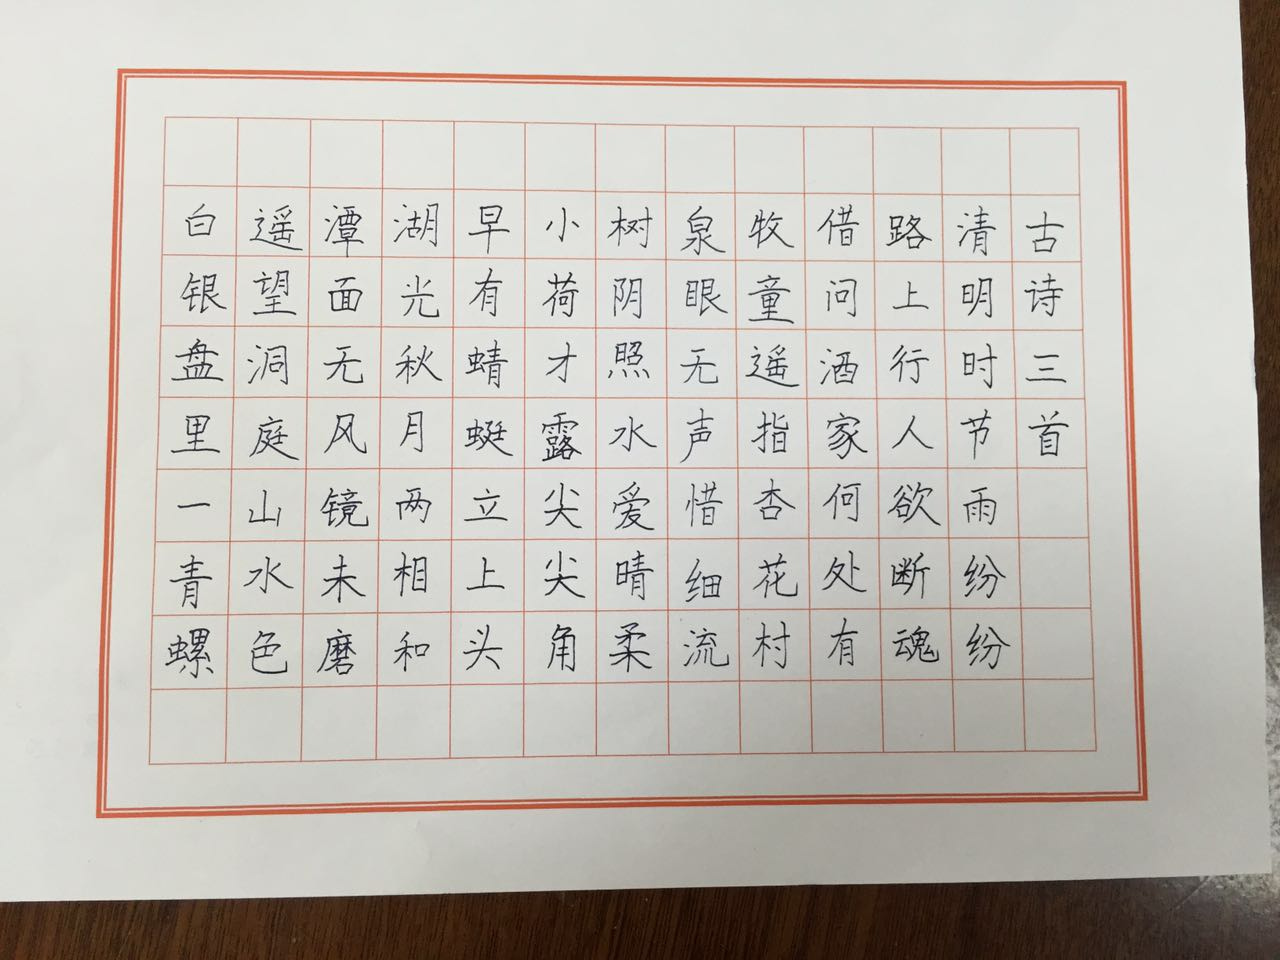 古诗三首
清明时节雨纷纷
路上行人欲断魂
借问酒家何处有
牧童遥指杏花村
泉眼无声惜细流
树阴照水爱晴柔
小荷才露尖尖角
早有蜻蜓立上头
湖光秋月两相和
潭面无风镜未磨
遥望洞庭山水色
白银盘里一青螺